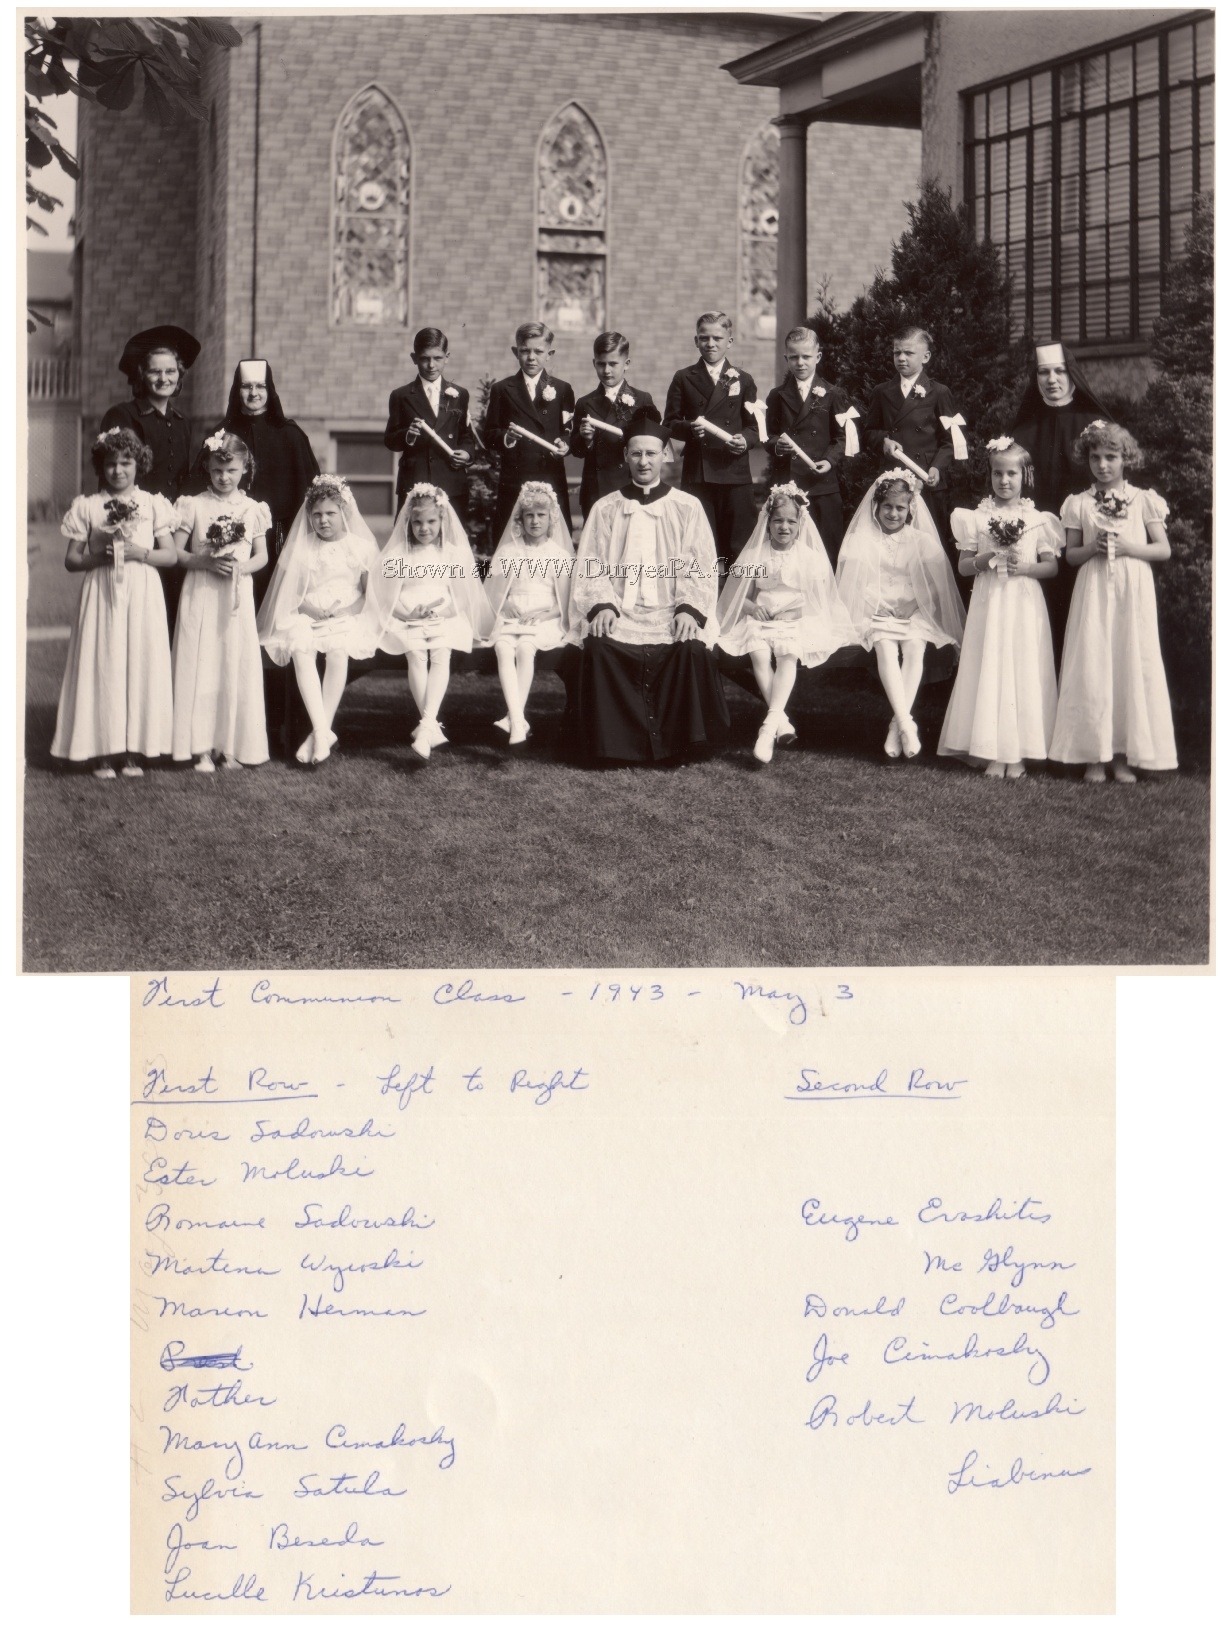 Shown at WWW.DuryeaPA.Com
First Communion Class - 1943 - May 3
First Row - Left to Right
Doris Sadowski
Ester Moluski
Romaine Sadowski
Martena Wycoski
Marion Herman
Father
Mary Ann Cimakosky
Sylvia Satula
Joan Beseda
Lucille Kristunos
Second Row
Eugene Evashitis
Mc Glynn
Donald Coolbaugh
Joe Cimakosky
Robert Moluski